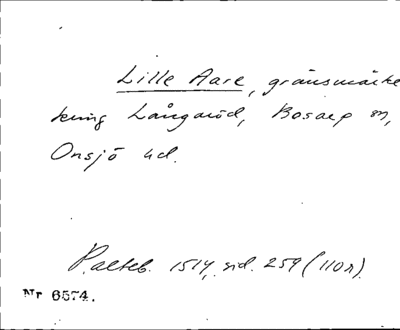 Lille Aare, gränsmärke
kring Långaröd, Bosarp sn,
Onsjö hd.
Palteb. 1514, sid. 259 (110r).
Nr 6574.